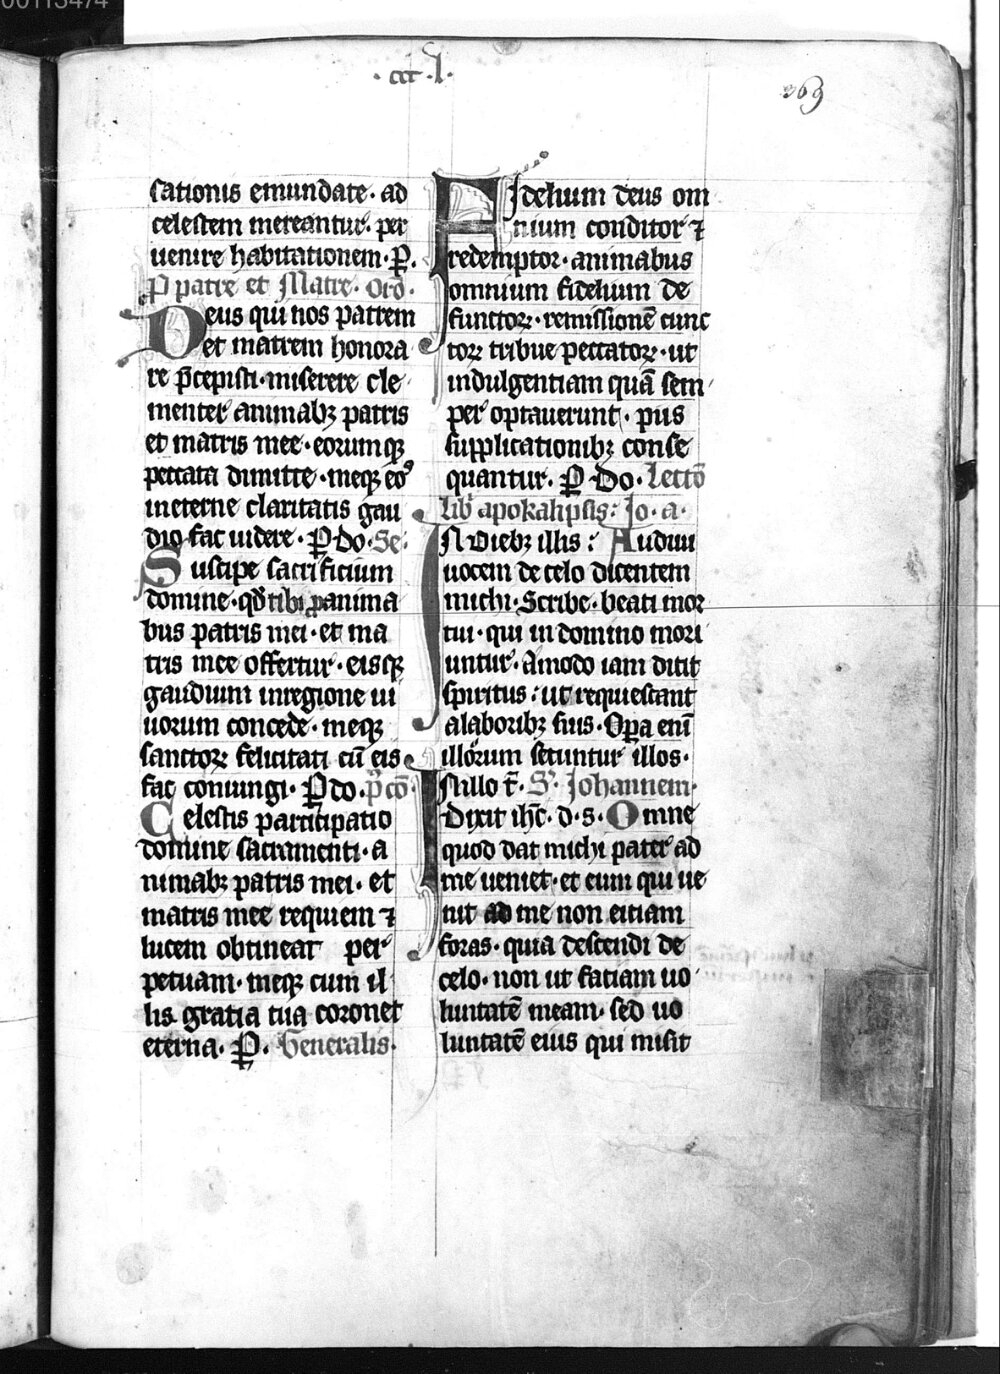 00113474
· ccc · l ·
369
cationis emundate · ad
celestem mereantur · per
uenire habitationem · P.
P patre et Matre · Orō.
Deus qui nos patrem
et matrem honora
re p̄cepisti · miserere cle
menter animabꝫ patris
et matris mee · eorumqꝫ
peccata dimitte · meqꝫ eoꝰ
in eterne claritatis gau
dio fac uidere · P do · Se:
Suscipe sacrificium
domine · qd̄ tibi ꝓ anima
bus patris mei · et ma
tris mee offertur · eisqꝫ
gaudium in regione ui
uorum concede · meqꝫ
sanctoꝝ felicitati cū eis
fac coniungi · P do · p̄cō ·
Celestis participatio
domine sacramenti · a
nimabꝫ patris mei · et
matris mee requiem ⁊
lucem obtineat per
petuam · meqꝫ cum il
lis gratia tua coronet
eterna · P. Generalis ·
Fidelium deus om
nium conditor ⁊
redemptor · animabus
omnium fidelium de
functoꝝ · remissionē cunc
toꝝ tribue peccatoꝝ · ut
indulgentiam quā sem
per optauerunt · piis
supplicationibꝫ conse
quantur · P Do · Lectō
Lib apokalipsis: Jo · a ·
IN diebꝫ illis: Audiui
uocem de celo dicentem
michi · Scribe · beati mor
tui · qui in domino mori
untur · Amodo iam dicit
spiritus: ut requiescant
a laboribꝫ suis · Opa enī
illorum secuntur illos ·
IN illo t̄ · S. Johannem ·
Dixit ihc̄ · d · s · Omne
quod dat michi pater ad
me ueniet · et eum qui ue
nit ad me non eiciam
foras · quia descendi de
celo · non ut faciam uo
luntatē meam · sed uo
luntatē eius qui misit